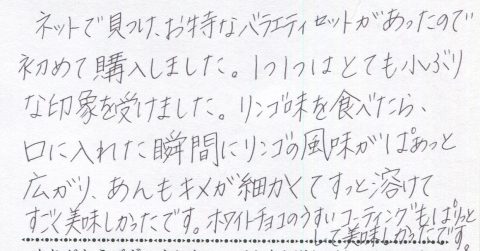 ネットで見つけ、お特なバラエティセットがあったので
初めて購入しました。1つ1つはとても小ぶり
な印象を受けました。リンゴ味を食べたら、
口に入れた瞬間にリンゴの風味がぱあっと
広がり、あんもキメが細かくてすっと溶けて
すごく美味しかったです。ホワイトチョコのうすいコーティングもぱりっと
して美味しかったです。